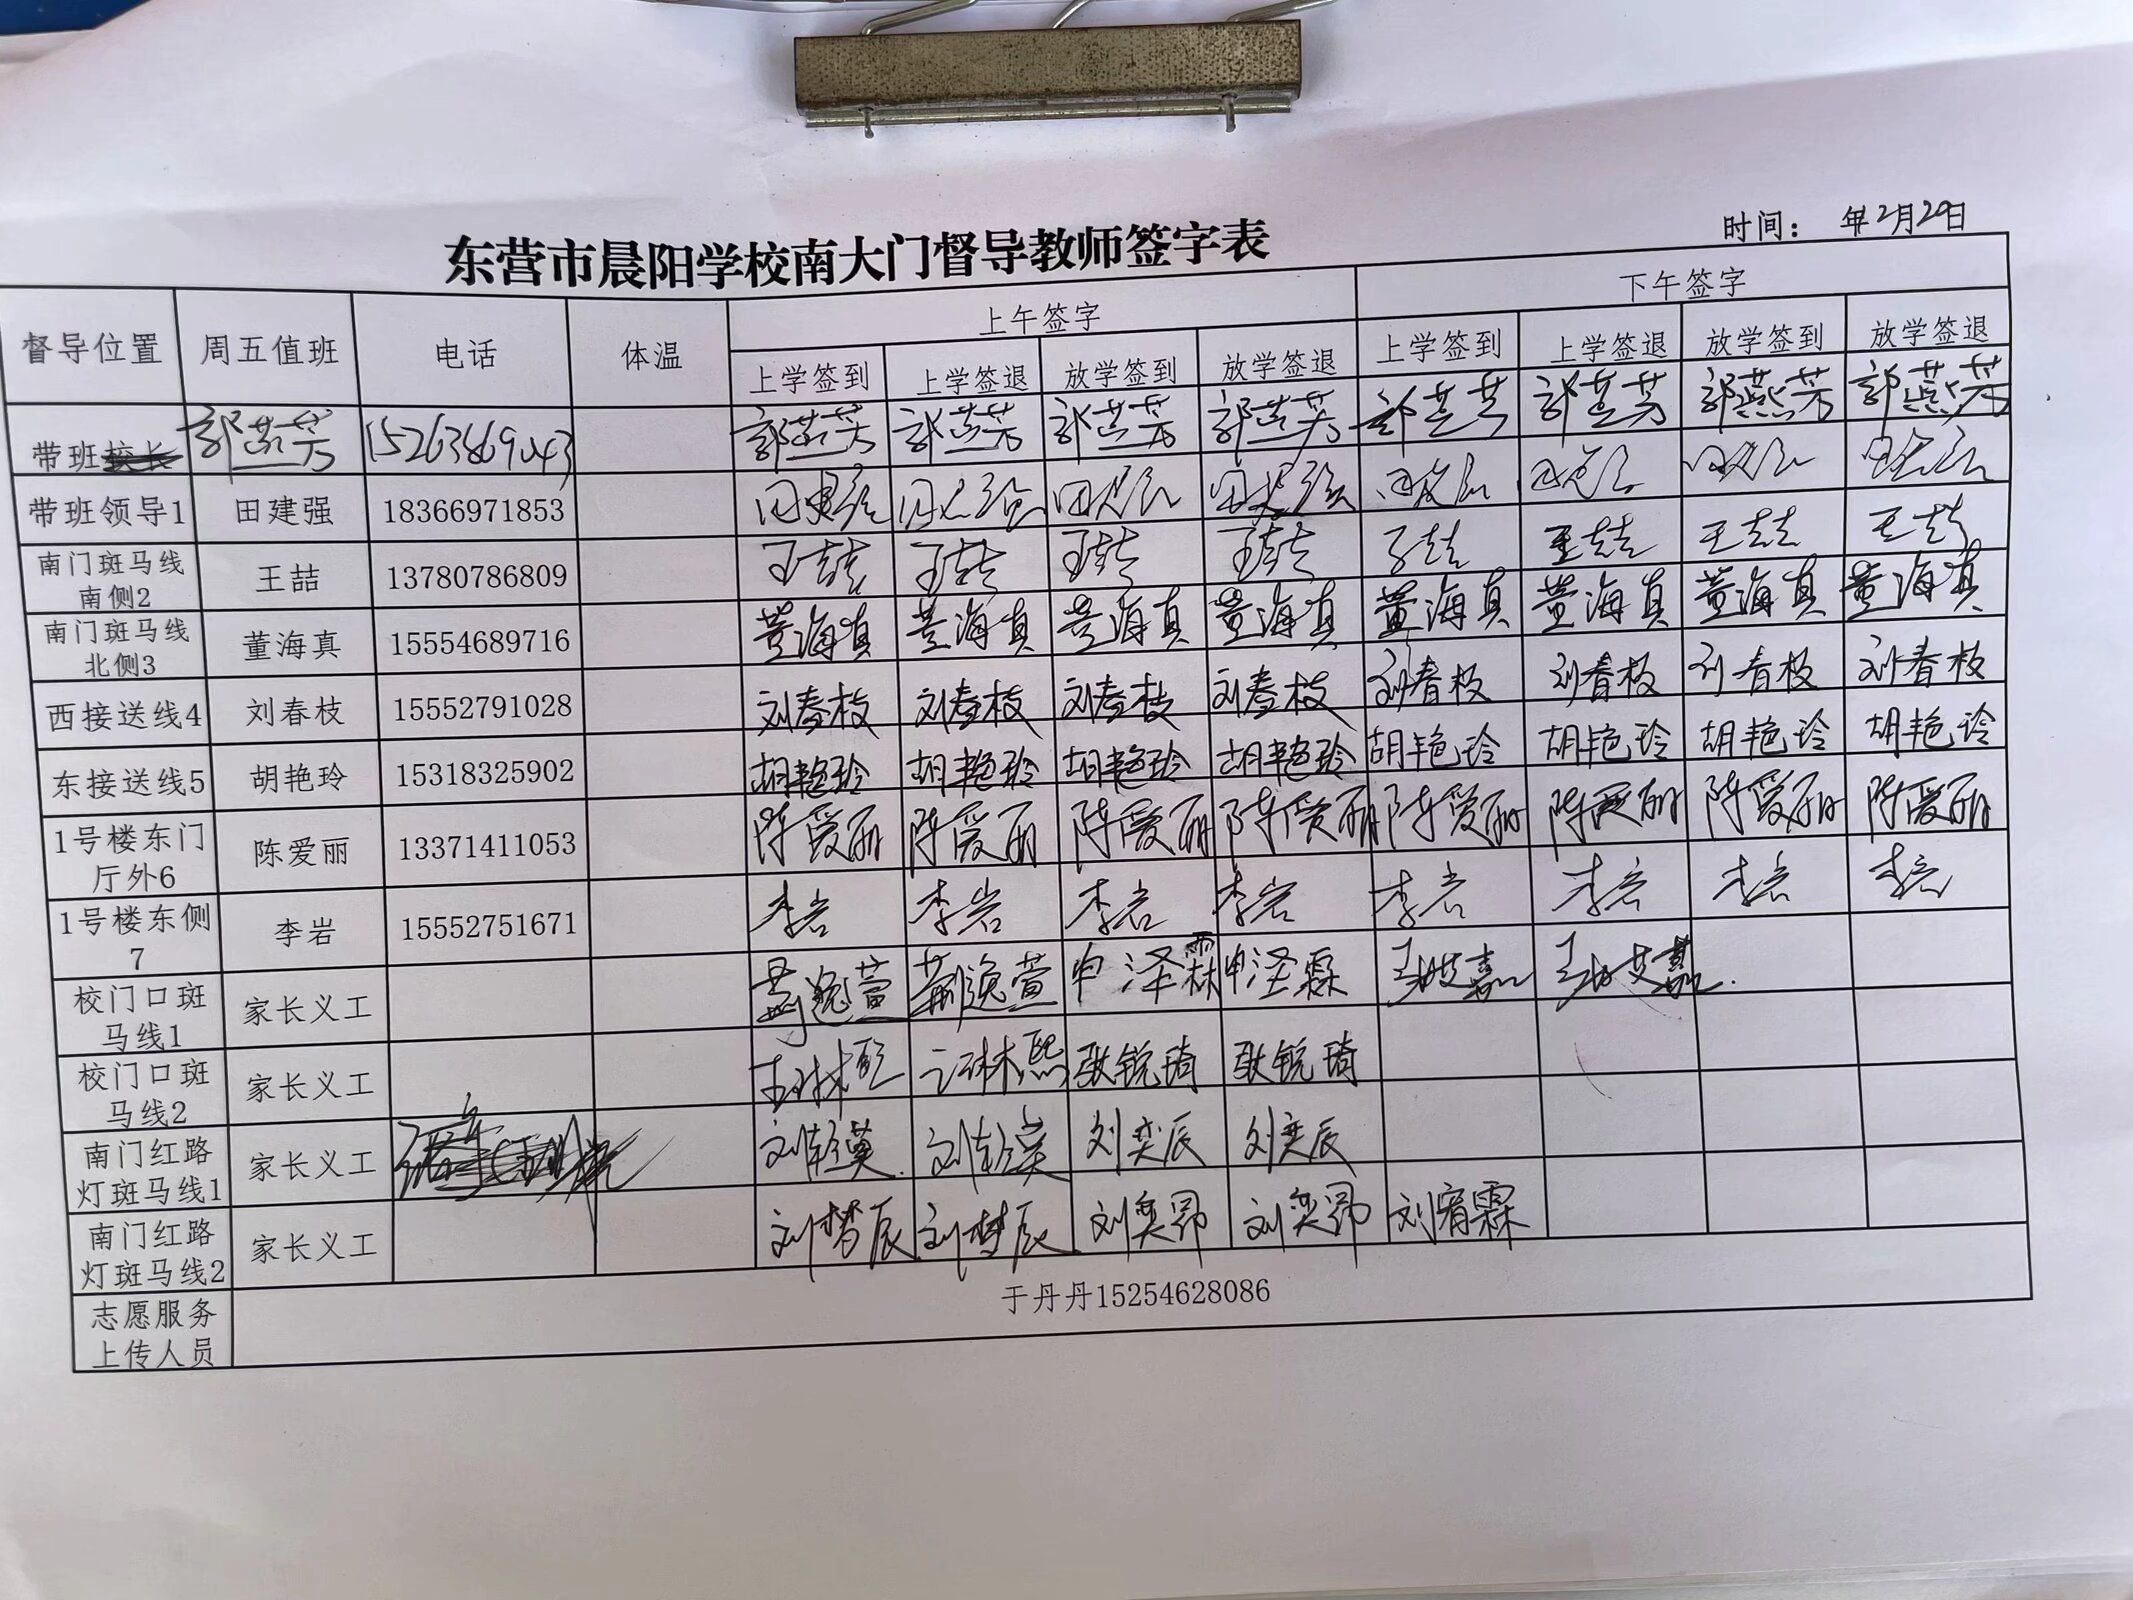 东营市晨阳学校南大门督导教师签字表
时间： 年2月29日
督导位置 周五值班 电话 体温 上午签字 下午签字
上学签到 上学签退 放学签到 放学签退 上学签到 上学签退 放学签到 放学签退
带班 郭燕芳 15263869043 郭燕芳 郭燕芳 郭燕芳 郭燕芳 郭燕芳 郭燕芳 郭燕芳 郭燕芳
带班领导1 田建强 18366971853 田建强 田建强 田建强 田建强 田建强 田建强 田建强 田建强
南门斑马线
南侧2 王喆 13780786809 王喆 王喆 王喆 王喆 王喆 王喆 王喆 王喆
南门斑马线
北侧3 董海真 15554689716 董海真 董海真 董海真 董海真 董海真 董海真 董海真 董海真
西接送线4 刘春枝 15552791028 刘春枝 刘春枝 刘春枝 刘春枝 刘春枝 刘春枝 刘春枝 刘春枝
东接送线5 胡艳玲 15318325902 胡艳玲 胡艳玲 胡艳玲 胡艳玲 胡艳玲 胡艳玲 胡艳玲 胡艳玲
1号楼东门
厅外6 陈爱丽 13371411053 陈爱丽 陈爱丽 陈爱丽 陈爱丽 陈爱丽 陈爱丽 陈爱丽 陈爱丽
1号楼东侧
7 李岩 15552751671 李岩 李岩 李岩 李岩 李岩 李岩 李岩 李岩
校门口斑
马线1 家长义工 申泽霖 申泽霖
校门口斑
马线2 家长义工 耿锐琦 耿锐琦
南门红路
灯斑马线1 家长义工 刘奕辰 刘奕辰
南门红路
灯斑马线2 家长义工 刘梦辰 刘梦辰 刘奕昂 刘奕昂 刘宥霖
志愿服务
上传人员 于丹丹15254628086